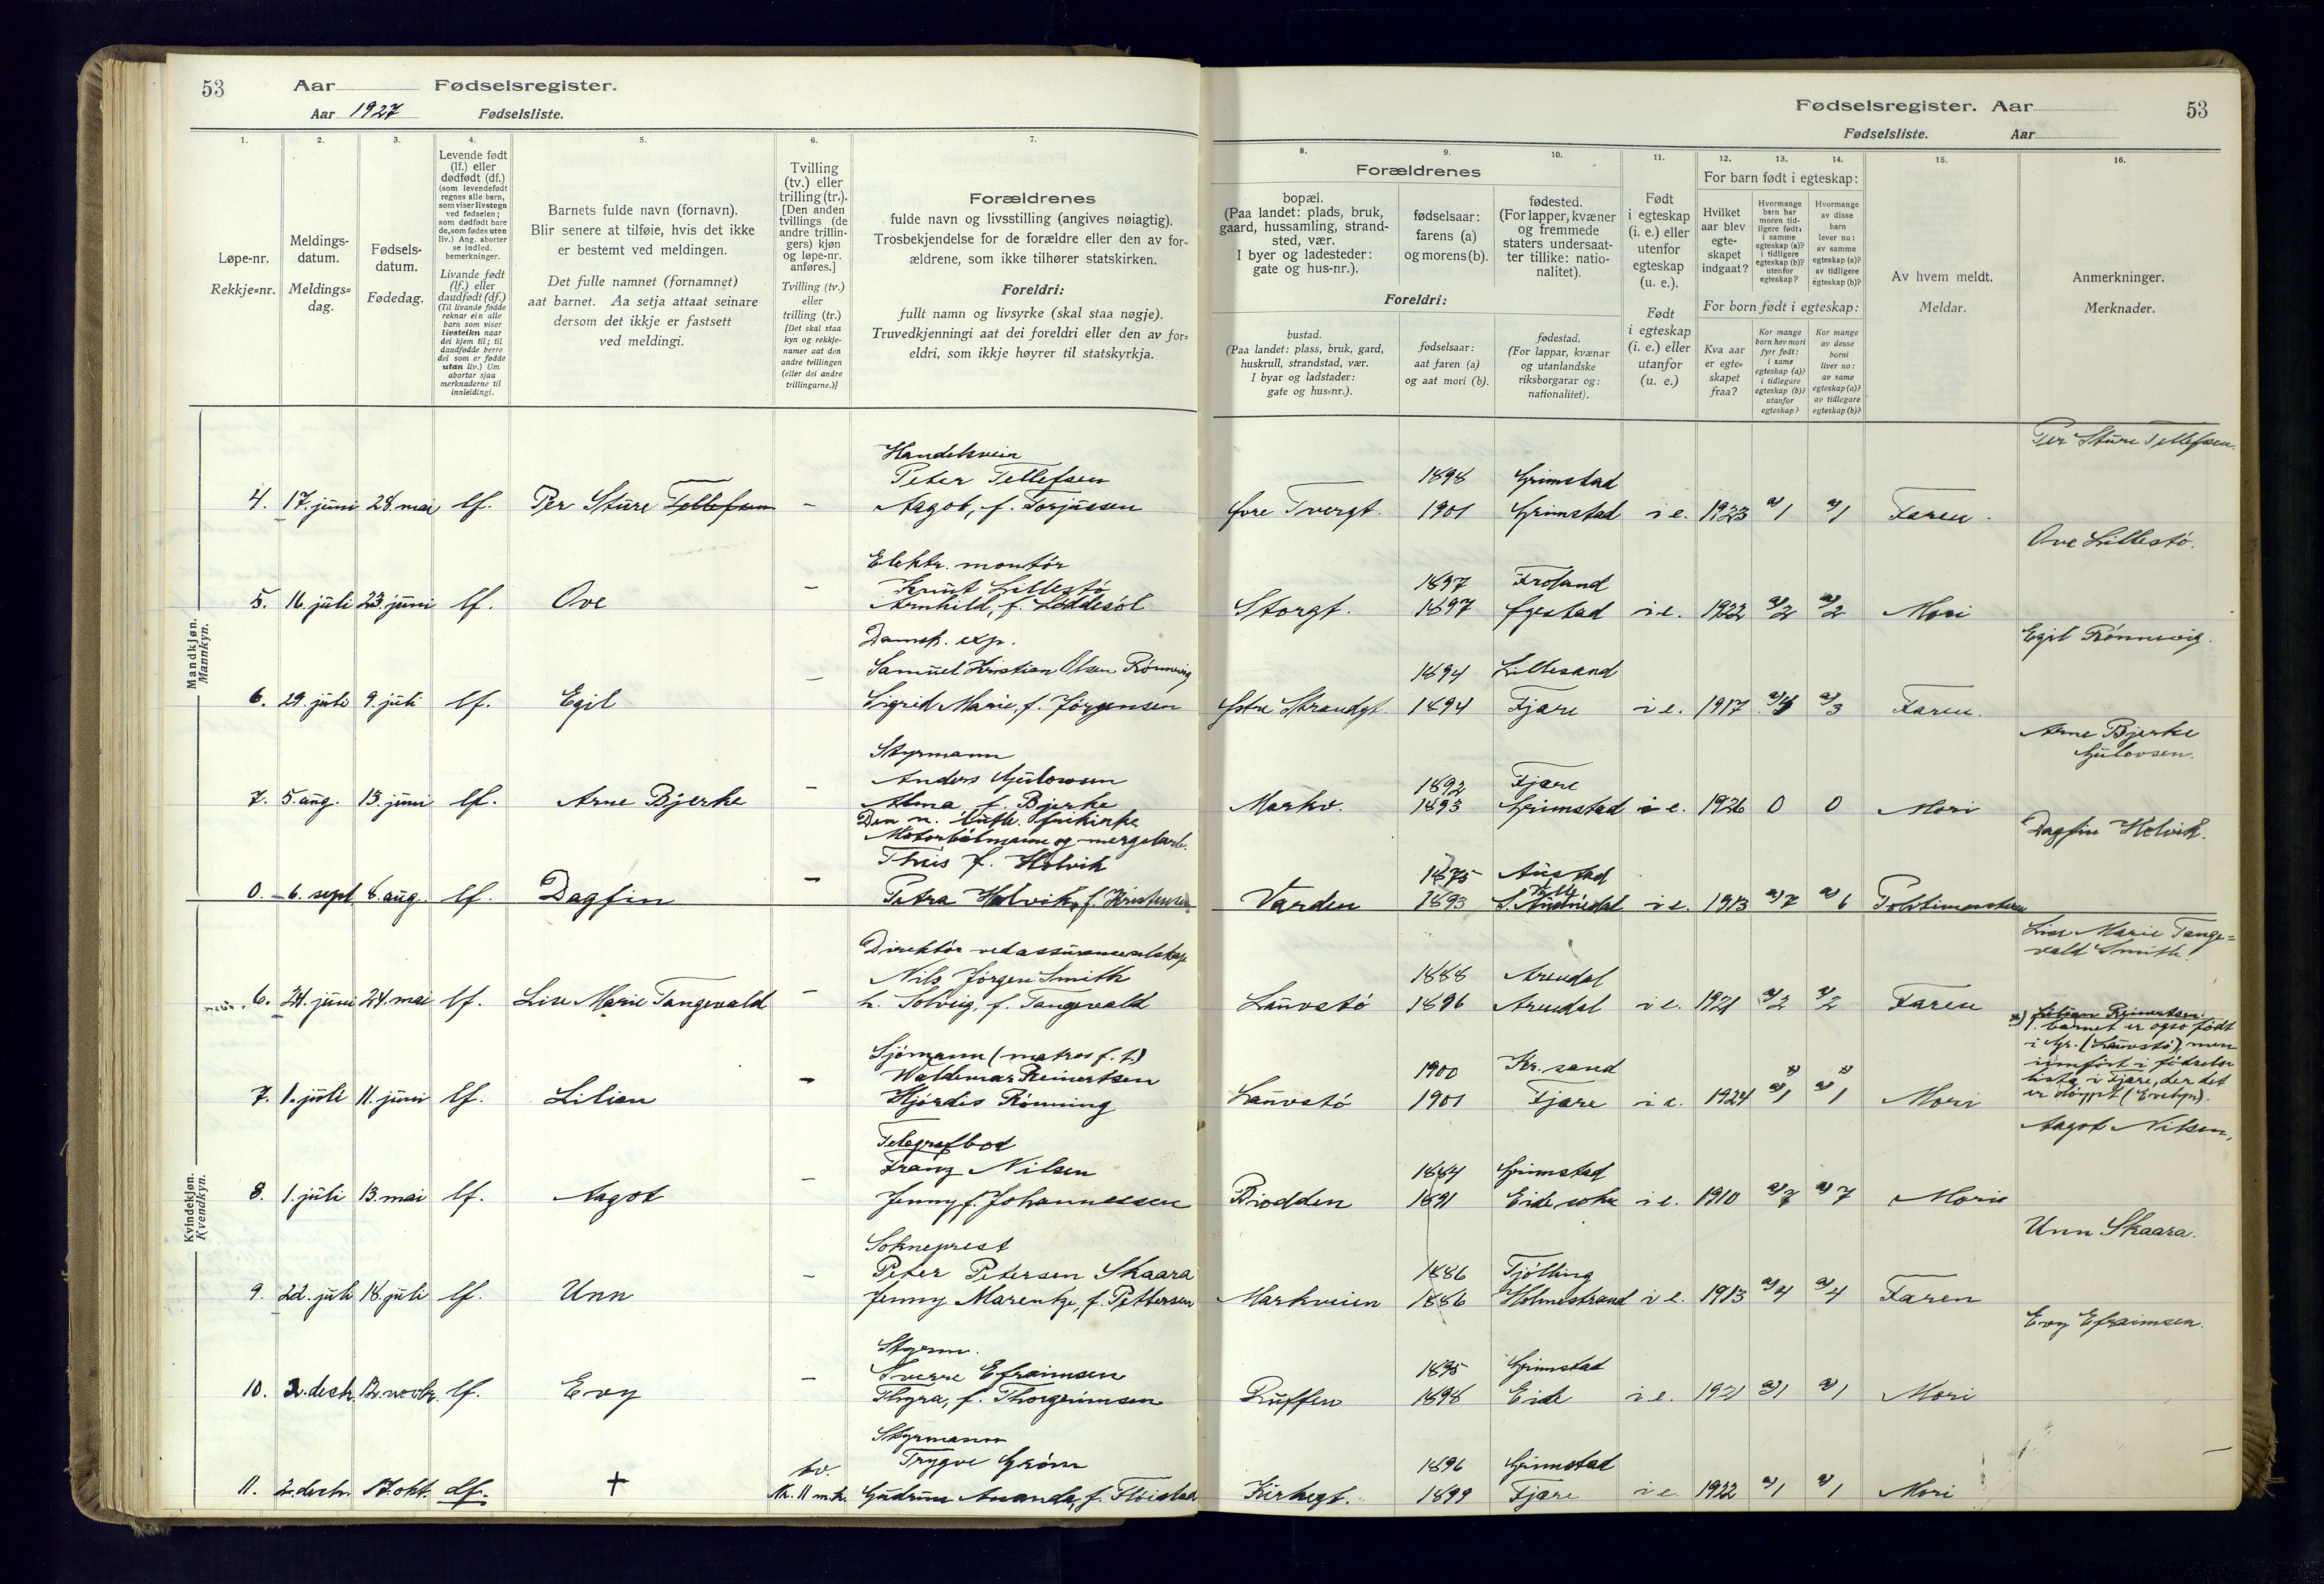 53
Aar
Fødselsregister.
Aar 1927
Fødselsliste.
1.
2.
3.
4.
5.
6.
7.
Løpe-nr.
Rekkje-nr.
Meldings-
datum.
Meldings-
dag.
Fødsels-
datum.
Fødedag.
Levende født
(lf.) eller
dødfødt (df.)
(som levendefødt
regnes alle barn,
som viser livstegn
ved fødselen;
som dødfødt bare
de, som fødes uten
liv.) Ang. aborter
se indled.
bemerkninger.
Livande født
(lf.) eller
daudfødt (df.)
(Til livande fødde
reknar ein alle
born som viser
livsteikn naar
dei kjem til; til
daudfødde berre
dei som er fødde
utan liv.) Um
abortar sjaa
merknaderne til
innleidingi.
Barnets fulde navn (fornavn).
Blir senere at tilføie, hvis det ikke
er bestemt ved meldingen.
Det fulle namnet (fornamnet)
aat barnet. Aa setja attaat seinare
dersom det ikkje er fastsett
ved meldingi.
Tvilling
(tv.) eller
trilling (tr.).
[Den anden
tvillings (de
andre trillin-
gers) kjøn
og løpe-nr.
anføres.]
Tvilling (tv.)
eller
trilling (tr.)
[Det skal staa
kyn og rekkje-
numer aat den
andre tvillingen
(eller dei andre
trillingarne.)]
Forældrenes
fulde navn og livsstilling (angives nøiagtig).
Trosbekjendelse for de forældre eller den av for-
ældrene, som ikke tilhører statskirken.
Foreldri:
fullt namn og livsyrke (skal staa nøgje).
Truvedkjenningi aat dei foreldri eller den av for-
eldri, som ikkje høyrer til statskyrkja.
Fødselsregister. Aar
53
Fødselsliste.
Aar
8.
9.
10.
11.
12.
13.
14.
15.
16.
Forældrenes
bopæl.
(Paa landet: plads, bruk,
gaard, hussamling, strand-
sted, vær.
I byer og ladesteder:
gate og hus-nr.).
fødselsaar:
farens (a)
og morens (b).
fødested.
(For lapper, kvæner
og fremmede
staters undersaat-
ter tillike: natio-
nalitet).
Foreldri:
bustad.
(Paa landet: plass, bruk, gard,
huskrull, strandstad, vær.
I byar og ladstader:
gate og hus-nr.).
fødselsaar:
aat faren (a)
og aat mori (b).
fødestad.
(For lappar, kvænar
og utanlandske
riksborgarar og:
nationalitet).
Født
i egteskap
(i. e.) eller
utenfor
egteskap
(u. e.).
Født
i egteskap
(i. e.) eller
utanfor
(u. e.)
For barn født i egteskap:
Hvilket
aar blev
egte-
skapet
indgaat?
Hvormange
barn har
moren tid-
ligere født:
i samme
egteskap (a)?
i tidligere
egteskap (b)?
utenfor
egteskap?
Hvormange
av disse
barn
lever nu:
av samme
egteskap (a)?
av tidligere
egteskap (b)?
For born født i egteskap:
Kva aar
er egte-
skapet
fraa?
Kor mange
born hev mori
fyrr født:
i same
egteskap (a)?
i tidlegare
egteskap (b)?
utanfor
egteskap?
Kor mange
av desse
borni
liver no:
av same
egteskap (a)?
av tidlegare
egteskap (b)?
Av hvem meldt.
Meldar.
Anmerkninger.
Merknader.
Mandkjøn.
Mannkyn.
Per Sture Tellefsen.
Handelsreis
Peter Tellefsen 1898 Grimstad
4. 17. juni 28. mai lf. Per Sture Tellefsen - Aagot, f. Torjussen Øvre Tvergt. 1901 Grimstad i e. 1923 a/1 a/1 Faren.
Ove Lillestö.
Elektr. montör
Knut Lillestö 1897 Froland
5. 16. juli 23. juni lf. Ove - Arnhild, f. Løddesöl Storgt. 1897 Øyestad i e. 1922 a/2 a/2 Mori
Egil Rönnevig.
Dampsk. exp.
Samuel Kristian Olsen Rönnevig 1894 Lillesand
6. 29. juli 9. juli lf. Egil - Sigrid Marie, f. Jörgensen Østre Strandgt. 1894 Fjære i e. 1917 a/3 Faren.
Arne Bjerke
Gulovsen.
Styrmann
Anders Gulowsen 1892 Fjære
7. 5. aug. 13. juni lf. Arne Bjerke - Alma, f. Bjerke Markv. 1893 Grimstad i e. 1926 0 0 Mori
Den n. luth. frikirke
Dagfin Holvik.
Motorbåtmann og mergelarb.
Thris f. Holvik 1875 Austad
0. 6. sept. 8. aug. lf. Dagfin - Petra Holvik, f. Kristensen Varden 1893 S. Audnedal i e. 1913 a/7 a/6 Politimesteren
Kvindekjøn.
Kvendkyn.
Lise Marie Tange-
vald Smith.
Direktör ved assuranceselskap
Nils Jörgen Smith 1888 Arendal
6. 24. juni 24. mai lf. Lise Marie Tangevald - h. Solveig, f. Tangevald Lauvstö 1896 Arendal i e. 1921 a/2 a/2 Faren
Lilian Reinertsen.
x) 1. barnet er også født
i Gr. (Lauvstö), men
innfört i födsels-
lista i Fjære, der det
er döypt (Evelyn).
Sjömann (matros f. t.)
Waldemar Reinertsen 1900 Kr.sand
7. 1. juli 11. juni lf. Lilian - Hjördis Rönning Lauvstö 1901 Fjære i e. 1924 a/1 x) a/1 x) Mori
Aagot Nilsen,
Telegrafbod
Franz Nilsen 1884 Grimstad
8. 1. juli 13. mai lf. Aagot - Jenny, f. Johannessen Biodden 1891 Eide sokn i e. 1910 a/7 a/7 Mori
Unn Skaara.
Sokneprest
Peter Petersen Skaara 1886 Tjölling
9. 22. juli 18. juli lf. Unn - Jenny Marentze, f. Pettersen Markveien 1886 Holmestrand i e. 1913 a/4 a/4 Faren
Evy Efraimsen.
Styrm.
Sverre Efraimsen 1895 Grimstad
10. 2. desbr. 12. novbr. lf. Evy - Thyra, f. Thorgrimsen Buffen 1898 Eide i e. 1921 a/1 a/1 Mori
Styrmann
Trygve Gröm 1896 Grimstad
11. 2. desbr. 17. okt. df. + tv. Nr. 11 m.k. Gudrun Amanda, f. Flöistad Kirkegt. 1899 Fjære i e. 1922 a/1 a/1 Mori